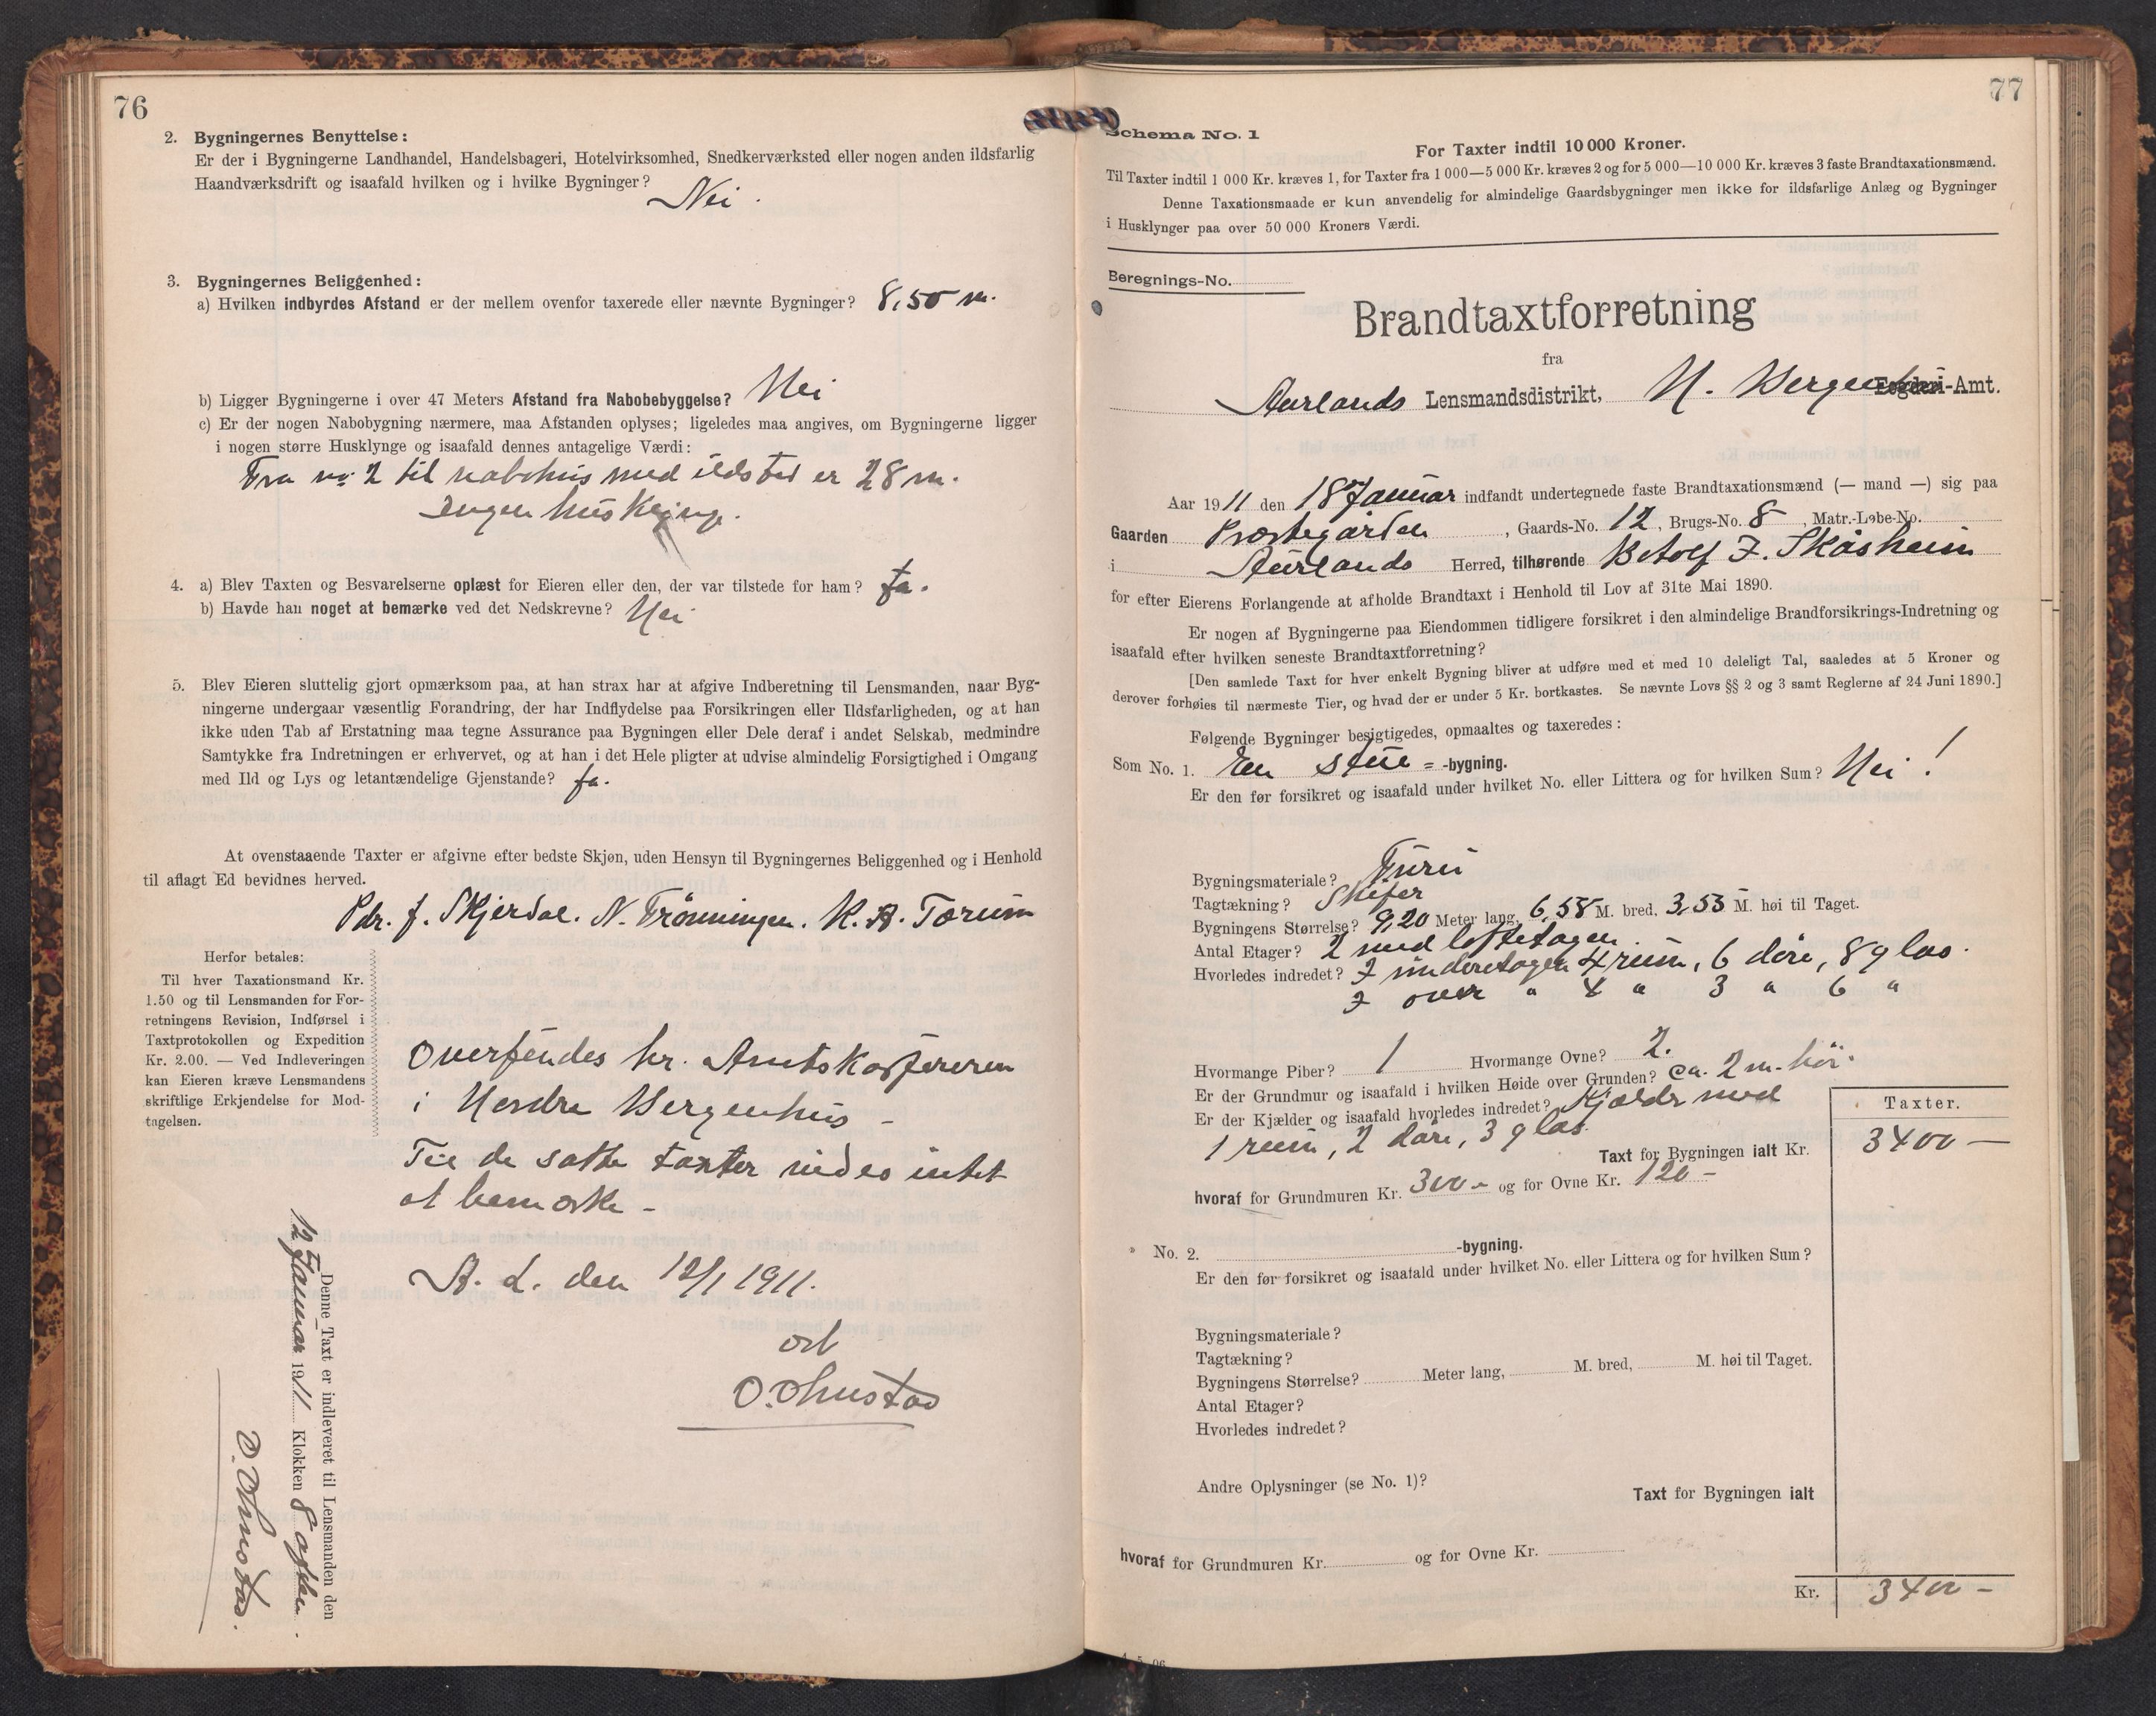 76
2. Bygningernes Benyttelse:
Er der i Bygningerne Landhandel, Handelsbageri, Hotelvirksomhed, Snedkerværksted eller nogen anden ildsfarlig
Haandværksdrift og isaafald hvilken og i hvilke Bygninger?
Nei.
3. Bygningernes Beliggenhed:
a) Hvilken indbyrdes Afstand er der mellem ovenfor taxerede eller nævnte Bygninger? 8,50 m.
b) Ligger Bygningerne i over 47 Meters Afstand fra Nabobebyggelse? Nei
c) Er der nogen Nabobygning nærmere, maa Afstanden oplyses; ligeledes maa angives, om Bygningerne ligger
i nogen større Husklynge og isaafald dennes antagelige Værdi:
Fra no 2 til nabohus med ildsted er 28 m.
Ingen husklynge.
4. a) Blev Taxten og Besvarelserne oplæst for Eieren eller den, der var tilstede for ham? Ja.
b) Havde han noget at bemærke ved det Nedskrevne? Nei
5. Blev Eieren sluttelig gjort opmærksom paa, at han strax har at afgive Indberetning til Lensmanden, naar Byg-
ningerne undergaar væsentlig Forandring, der har Indflydelse paa Forsikringen eller Ildsfarligheden, og at han
ikke uden Tab af Erstatning maa tegne Assurance paa Bygningen eller Dele deraf i andet Selskab, medmindre
Samtykke fra Indretningen er erhvervet, og at han i det Hele pligter at udvise almindelig Forsigtighed i Omgang
med Ild og Lys og letantændelige Gjenstande? Ja.
At ovenstaaende Taxter er afgivne efter bedste Skjøn, uden Hensyn til Bygningernes Beliggenhed og i Henhold
til aflagt Ed bevidnes herved.
Pdr. J. Skjerdal. N. Frønningen. K. A. Tærum
Herfor betales:
Til hver Taxationsmand Kr.
1.50 og til Lensmanden for For-
retningens Revision, Indførsel i
Taxtprotokollen og Expedition
Kr. 2.00. — Ved Indleveringen
kan Eieren kræve Lensmandens
skriftlige Erkjendelse for Mod-
tagelsen.
Oversendes hr. Amtskassereren
i Nordre Bergenhus -
Til de satte taxter vides intet
at bemærke -
A. L. den 12/1 1911.
O. Ohnstad
Denne Taxt er indleveret til Lensmanden den
12 Januar 1911 Klokken 8 aften.
O. Ohnstad.
77
Schema No. 1
For Taxter indtil 10 000 Kroner.
Til Taxter indtil 1 000 Kr. kræves 1, for Taxter fra 1 000—5 000 Kr. kræves 2 og for 5 000—10 000 Kr. kræves 3 faste Brandtaxationsmænd.
Denne Taxationsmaade er kun anvendelig for almindelige Gaardsbygninger men ikke for ildsfarlige Anlæg og Bygninger
i Husklynger paa over 50 000 Kroners Værdi.
Beregnings-No.
Brandtaxtforretning
fra
Aurlands Lensmandsdistrikt, N. Bergenhus Fogderi-Amt.
Aar 1911 den 18 Januar indfandt undertegnede faste Brandtaxationsmænd (— mand —) sig paa
Gaarden Præstegården, Gaards-No. 12, Brugs-No. 8, Matr.-Løbe-No.
i Aurlands Herred, tilhørende Botolf J. Skåsheim
for efter Eierens Forlangende at afholde Brandtaxt i Henhold til Lov af 31te Mai 1890.
Er nogen af Bygningerne paa Eiendommen tidligere forsikret i den almindelige Brandforsikrings-Indretning og
isaafald efter hvilken seneste Brandtaxtforretning?
[Den samlede Taxt for hver enkelt Bygning bliver at udføre med et med 10 deleligt Tal, saaledes at 5 Kroner og
derover forhøies til nærmeste Tier, og hvad der er under 5 Kr. bortkastes. Se nævnte Lovs §§ 2 og 3 samt Reglerne af 24 Juni 1890.]
Følgende Bygninger besigtigedes, opmaaltes og taxeredes:
Som No. 1. En stue = -bygning.
Er den før forsikret og isaafald under hvilket No. eller Littera og for hvilken Sum? Nei!
Bygningsmateriale? Furu
Tagtækning? Skifer
Bygningens Størrelse? 9,20 Meter lang, 6,58 M. bred, 3,53 M. høi til Taget.
Antal Etager? 2 med loftetagen.
Hvorledes indredet? I underetagen 4 rum, 6 døre, 8 glas.
I over " 4 " 3 " 6 "
Hvormange Piber? 1 Hvormange Ovne? 2.
Er der Grundmur og isaafald i hvilken Høide over Grunden? ca. 2 m. høi.
Er der Kjælder og isaafald hvorledes indredet? Kjælder med
1 rum, 2 døre, 3 glas.
Taxter.
Taxt for Bygningen ialt Kr. 3400 —
hvoraf for Grundmuren Kr. 300 - og for Ovne Kr. 120 -
No. 2. -bygning.
Er den før forsikret og isaafald under hvilket No. eller Littera og for hvilken Sum?
Bygningsmateriale?
Tagtækning?
Bygningens Størrelse? Meter lang, M. bred, M. høi til Taget.
Antal Etager?
Hvorledes indredet?
Andre Oplysninger (se No. 1)?
Taxt for Bygningen ialt
hvoraf for Grundmuren Kr. og for Ovne Kr.
Kr. 3400 -